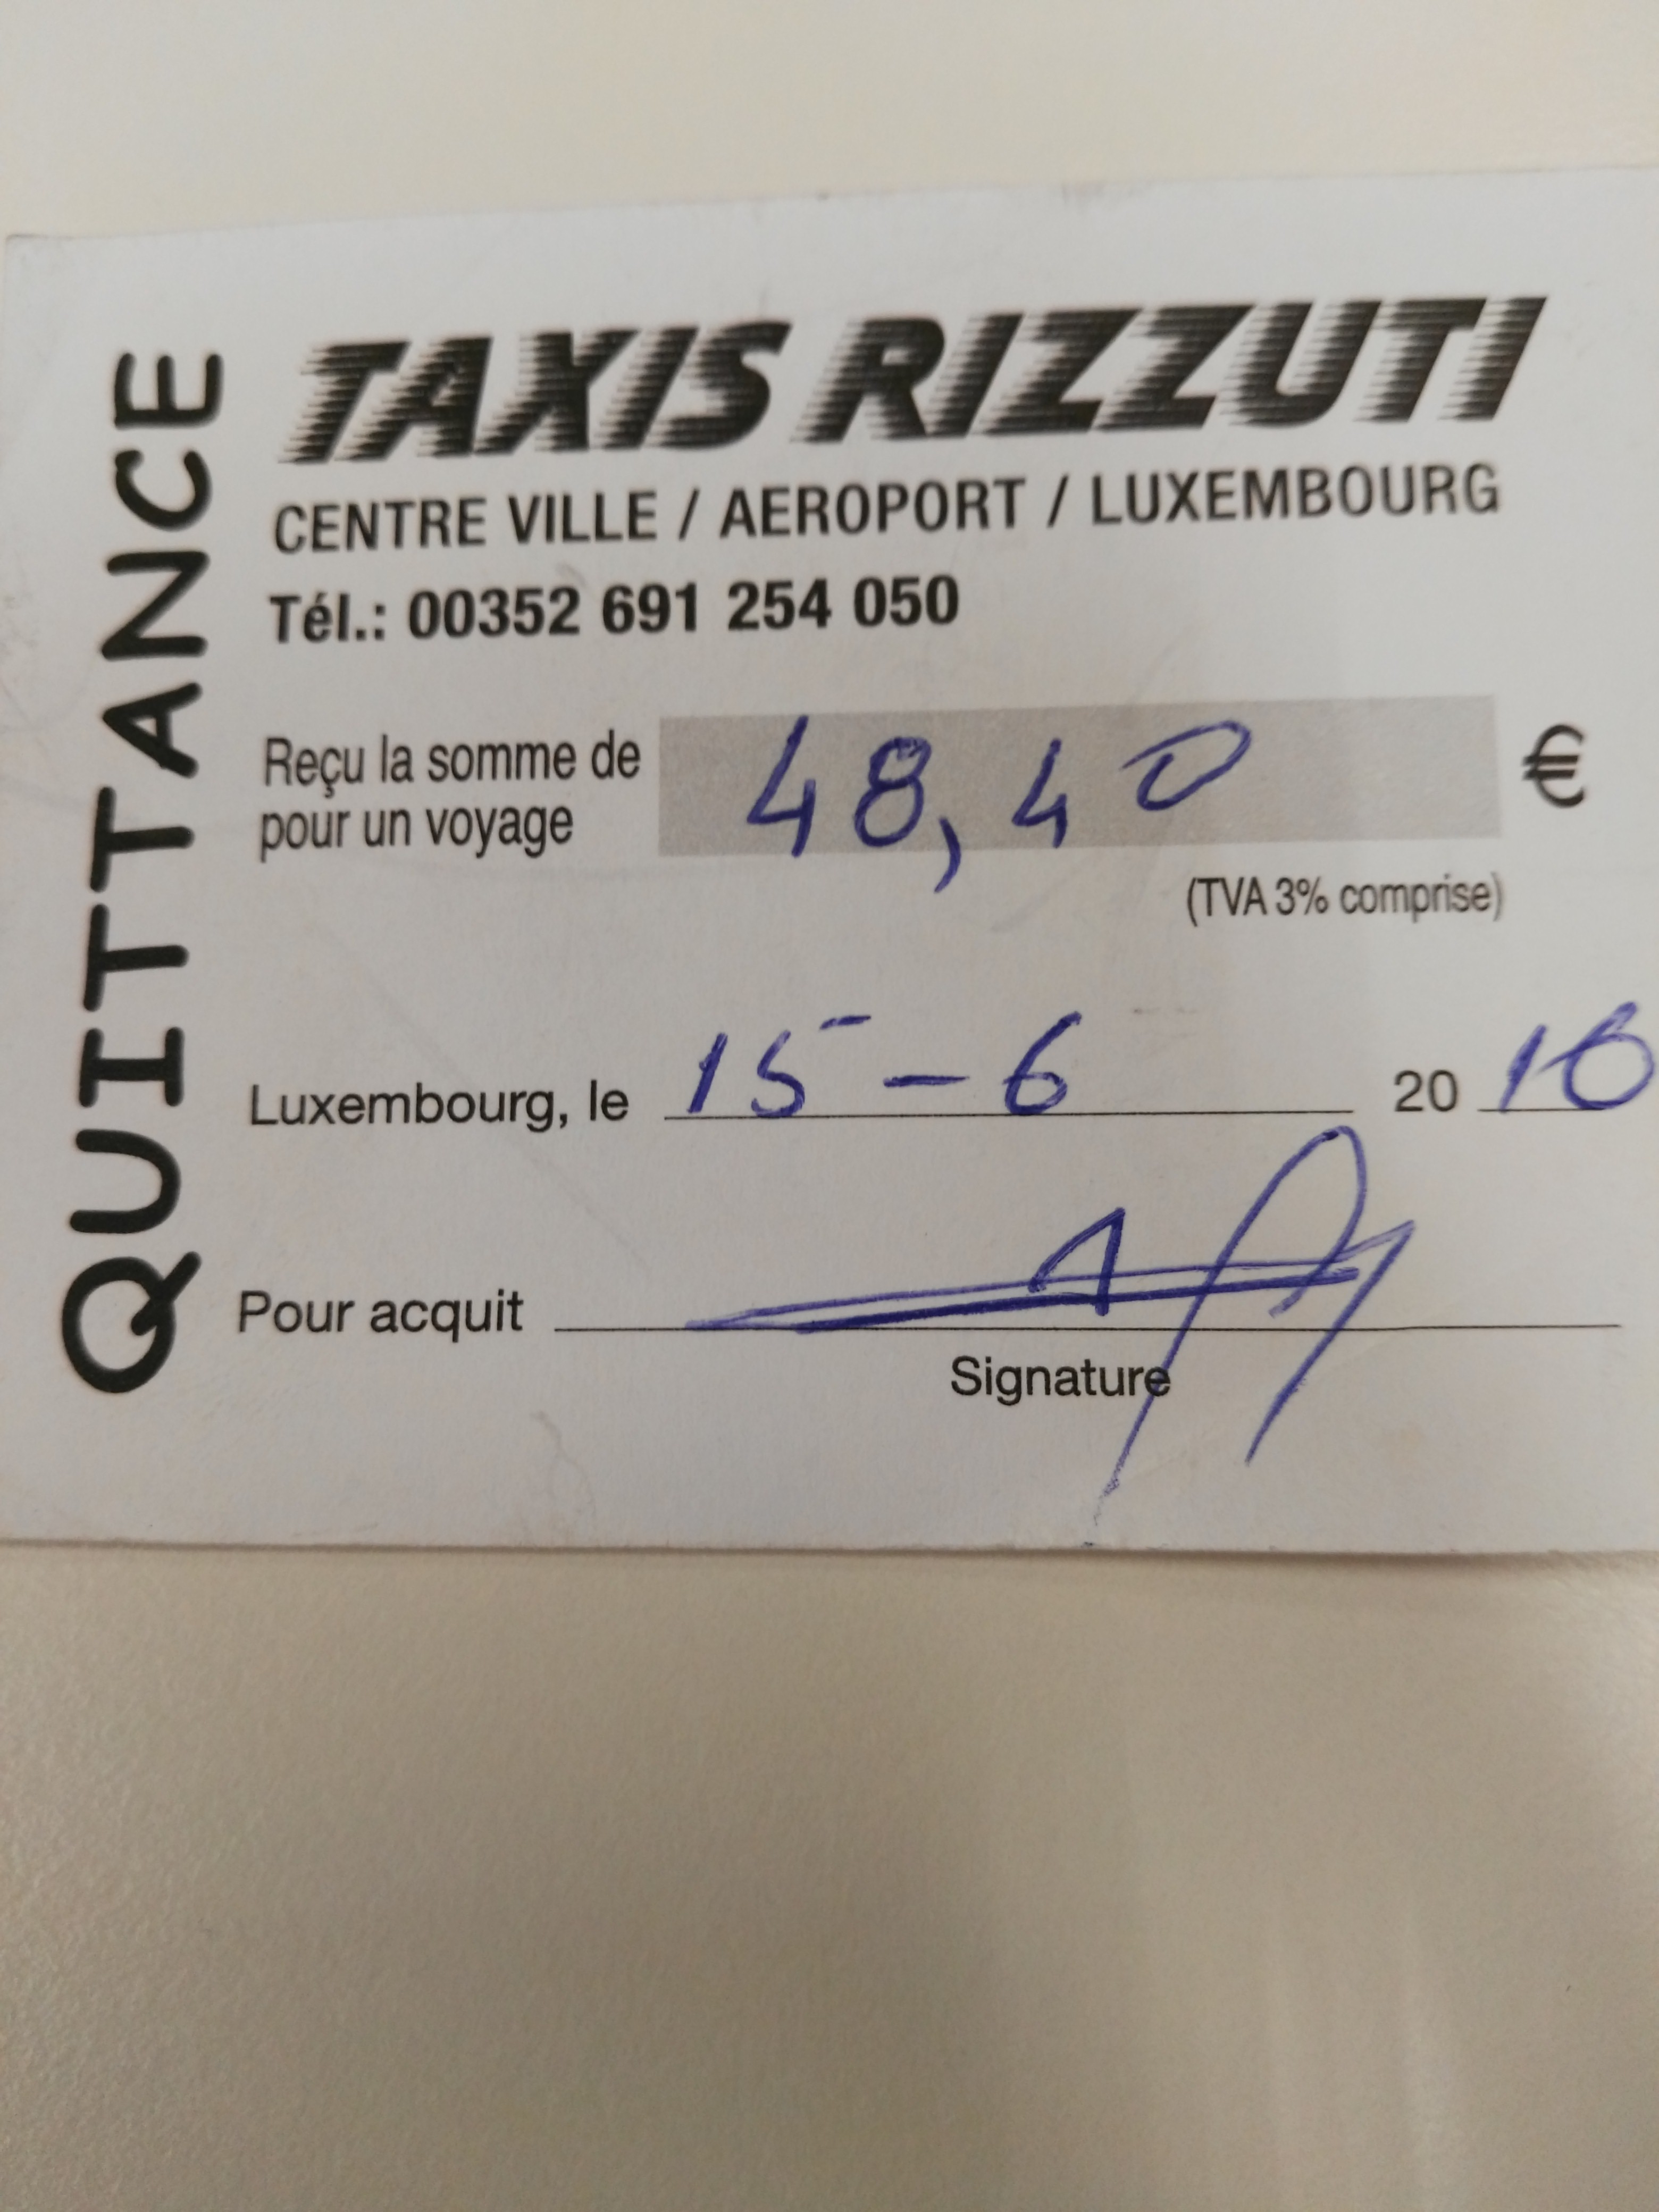 QUITTANCE
TAXIS RIZZUTI
CENTRE VILLE / AEROPORT / LUXEMBOURG
Tél.: 00352 691 254 050
Reçu la somme de 48,40 €
pour un voyage
(TVA 3% comprise)
Luxembourg, le 15-6 20
Pour acquit
Signature